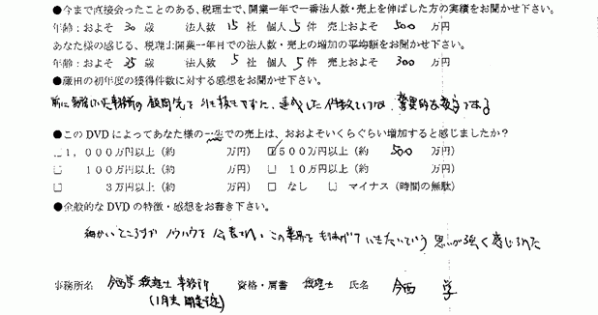 ●今まで直接会ったことのある、税理士で、開業一年で一番法人数・売上を伸ばした方の実績をお聞かせ下さい。
年齢:およそ 30 歳 法人数 15 社 個人 5 件 売上およそ 500 万円
あなた様の感じる、税理士開業一年目での法人数・売上の増加の平均額をお聞かせ下さい。
年齢:およそ 35 歳 法人数 5 社 個人 5 件 売上およそ 300 万円
●蓮田の初年度の獲得件数に対する感想をお聞かせ下さい。
前に勤務していた事務所の顧問先を引き継がずに、達成した件数というのは、驚異的な数字である
●このDVDによってあなた様の一生での売上は、おおよそいくらぐらい増加すると感じましたか?
□1,000万円以上(約 万円) ☑500万円以上(約 500 万円)
□ 100万円以上(約 万円) □ 10万円以上(約 万円)
□ 3万円以上(約 万円) □ なし □ マイナス(時間の無駄)
●全般的なDVDの特徴・感想をお書き下さい。
細かいところまで ノウハウを 公表され、この業界を もりあげて いきたいという 思いが強く感じられた
事務所名 今西学税理士事務所 資格・肩書 税理士 氏名 今西 学
(1月末 開業予定)